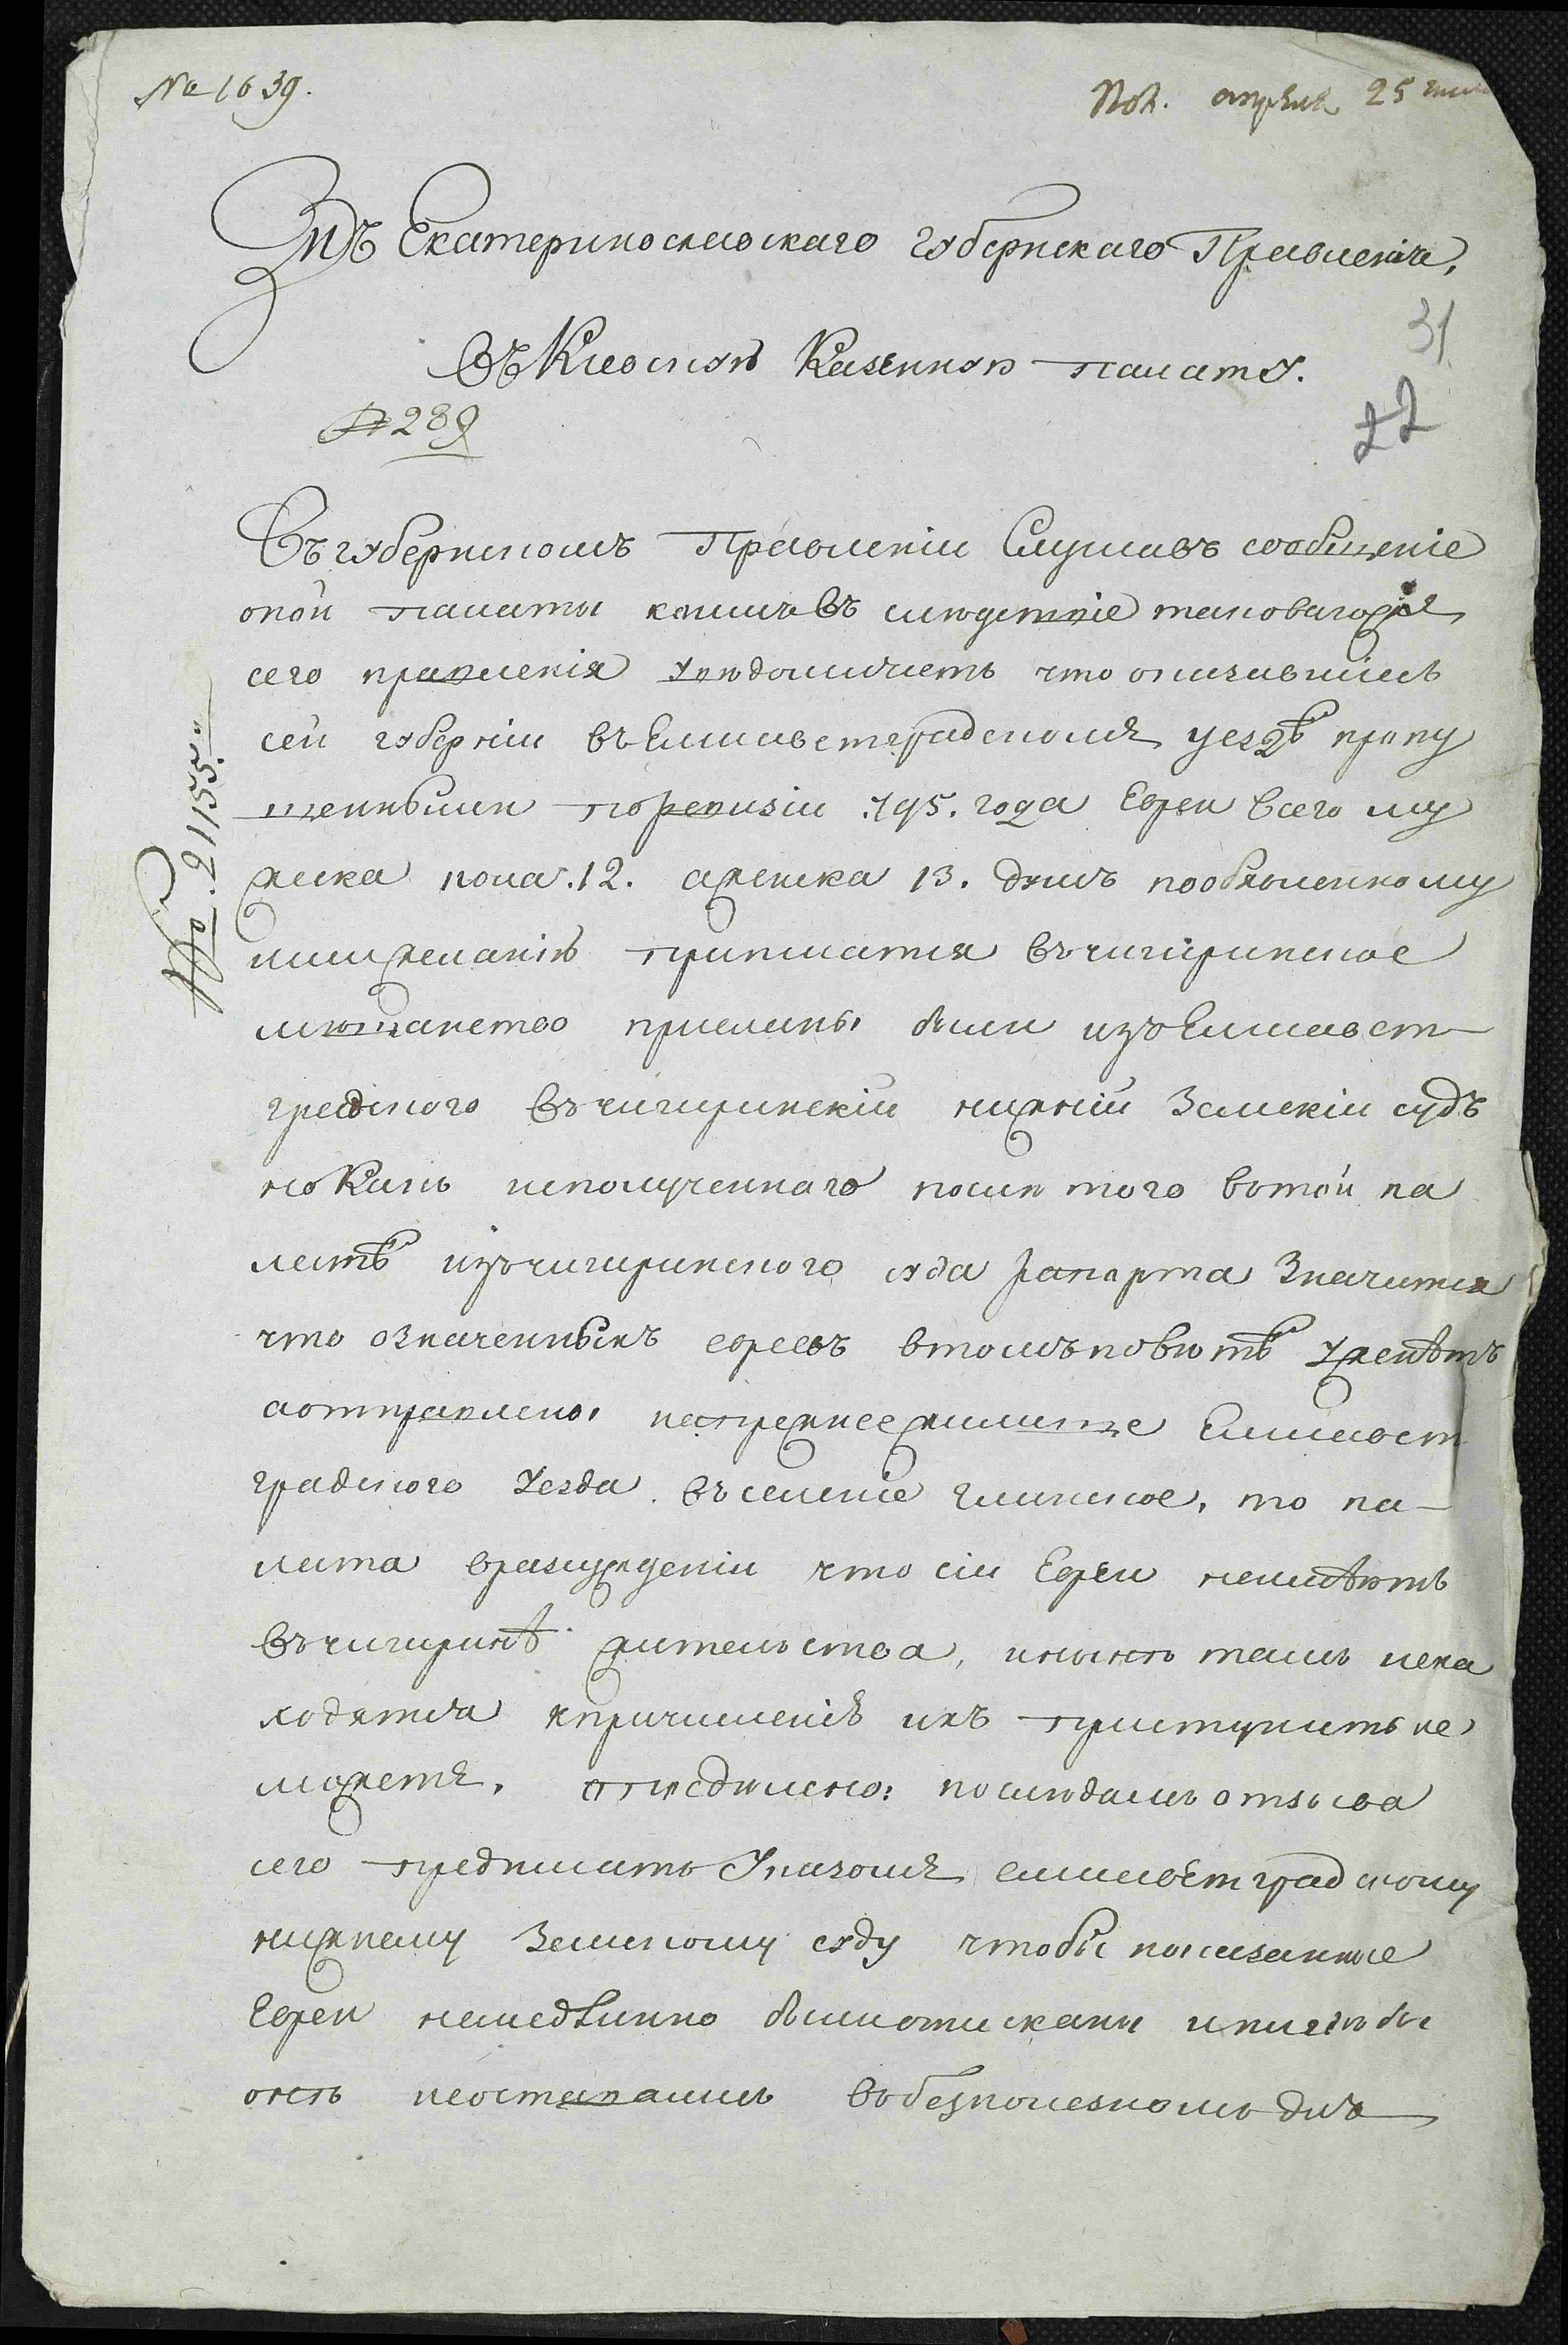 № 1639.
Пол. апреля 25
Изъ Екатеринославскаго Губернскаго Правленія,
Въ Киевскую Казенную палату.
31
22
289
Въ губернскомъ Правленіи Слушавъ сообщеніе
оной палаты коимъ въ следствіе таковагожъ
сего правленія уведомляетъ что оказавшіесь
сей губерніи въ Елисаветградскомъ уездѣ пропу
щенными поревизіи 795. года Евреи всего му
жеска пола .12. аженска 13. душъ пообявленному
ими желанію приписатся въ чигиринское
мещанство присланы были изъ Елисавет
градского въ чигиринскій нижній Земскій судъ
но какъ исполученнаго после того вътой па
латѣ изъ чигиринского суда рапорта Значится
что означенныхъ евреевъ втомъ поветѣ уженѣтъ
аотправлены напрежнее жилище Елисавет
градского уезда въ селеніе глинское, то па
лата вразсужденіи что сіи Евреи неимѣютъ
въ чигиринѣ жительства, иныне тамъ нена
ходятся кпричисленію ихъ приступить не
можетъ. определено: последамъ отзыва
сего предписать Указомъ елисаветградскому
нижнему Земскому суду чтобы показанные
Евреи немедлѣнно были отисканы
оне неоставались въ безполезномъ для
№. 21155.